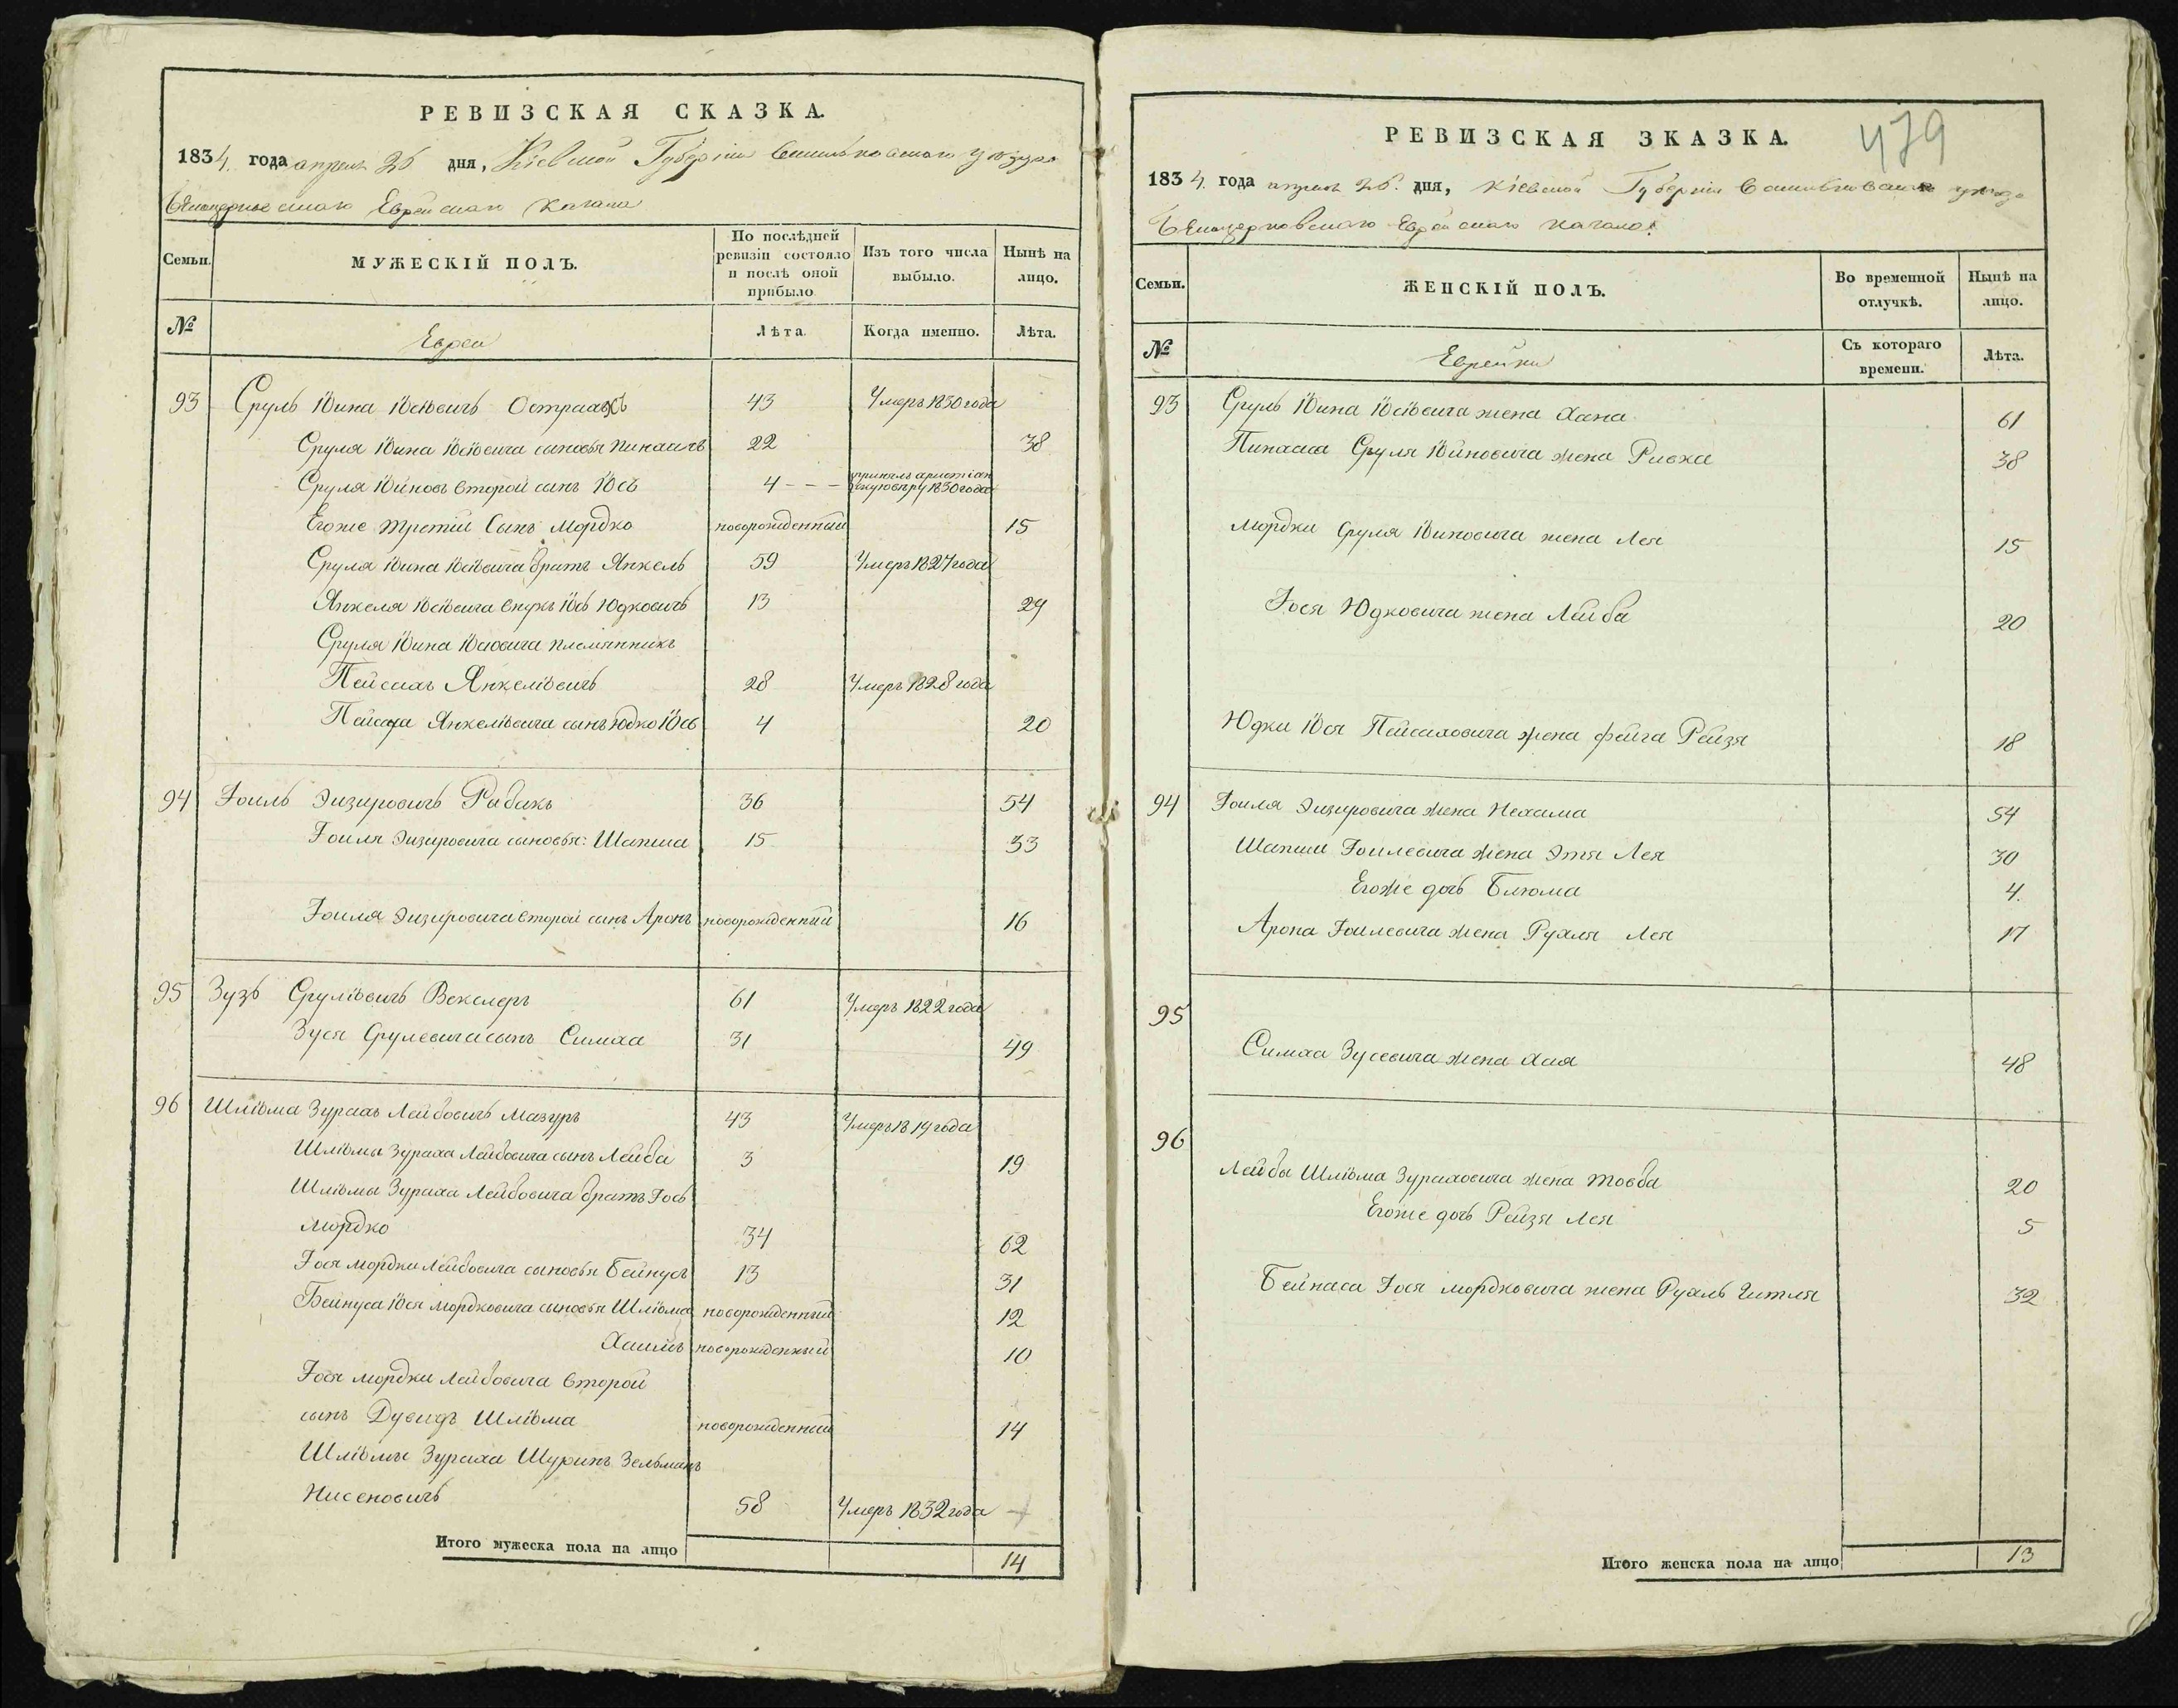 РЕВИЗСКАЯ СКАЗКА.
1834. года апреля 26 дня, Кіевской Губерніи Васильковскаго уѣзда
Бѣлоцерковскаго Еврейскаго Кагала
Семьи.
МУЖЕСКІЙ ПОЛЪ.
По послѣдней ревизіи состояло и послѣ оной прибыло
Изъ того числа выбыло.
Нынѣ на лицо.
№
Евреи
Лѣта.
Когда именно.
Лѣта.
93 Сруль Іойна Іосіовичъ Острахъ 43 Умеръ 1830 года
Сруля Іойна Іосіовича сыновья Пинхасъ 22 38
Сруля Іойновъ второй сынъ Іось 4 - - - принялъ христіанскую вѣру 1830 года
Егоже третій Сынъ Мордко новорожденный 15
Сруля Іойна Іосіовича братъ Янкель 59 Умеръ 1827 года
Янкеля Іосіовича внукъ Іось Юдковичъ 13 29
Сруля Іойна Іосіовича племянникъ
Пейсахъ Янкеліовичъ 28 Умеръ 1828 года
Пейсаха Янкеліовича сынъ Юдко Іось 4 20
94 Іоиль Эизировичъ Рабакъ 36 54
Іоиля Эизировича сыновья: Шапша 15 33
Іоиля Эизировича второй сынъ Аронъ новорожденный 16
95 Зузь Сруліовичъ Векслеръ 61 Умеръ 1822 года
Зуся Срулевича сынъ Симха 31 49
96 Шліома Зурахъ Лейбовичъ Мазуръ 43 Умеръ 1819 года
Шліомы Зураха Лейбовича сынъ Лейба 3 19
Шліомы Зураха Лейбовича братъ Іось
Мордко 34 62
Іося Мордки Лейбовича сыновья Бейнусъ 13 31
Бейнуса Іося Мордковича сыновья Шліома новорожденный 12
Хаимъ новорожденный 10
Іося Мордки Лейбовича второй
сынъ Дувидъ Шліома новорожденный 14
Шліомы Зураха Шуринъ Зельманъ
Нисеновичъ 58 Умеръ 1832 года
Итого мужеска пола на лицо 14
479
РЕВИЗСКАЯ ЗКАЗКА.
1834. года апреля 26. дня, Кіевской Губерніи Васильковскаго уѣзда
Бѣлоцерковскаго Еврейскаго Кагала.
Семьи.
ЖЕНСКІЙ ПОЛЪ.
Во временной отлучкѣ.
Нынѣ на лицо.
№
Еврейки
Съ котораго времени.
Лѣта.
93 Сруль Іойна Іосіовича жена Хана 61
Пинхаса Сруля Іойновича жена Ривка 38
Мордки Сруля Іойновича жена Лея 15
Іося Юдковича жена Лейба 20
Юдки Іося Пейсаховича жена Фейга Рейзя 18
94 Іоиля Эизировича жена Нехама 54
Шапши Іоилевича жена Этя Лея 30
Егоже дочь Блюма 4.
Арона Іоилевича жена Рухля Лея 17
95
Симха Зусевича жена Хая 48
96
Лейбы Шліома Зураховича жена Товба 20
Егоже дочь Рейзя Лея 5
Бейнаса Іося Мордковича жена Рухль Гитля 32
Итого женска пола на лицо 13